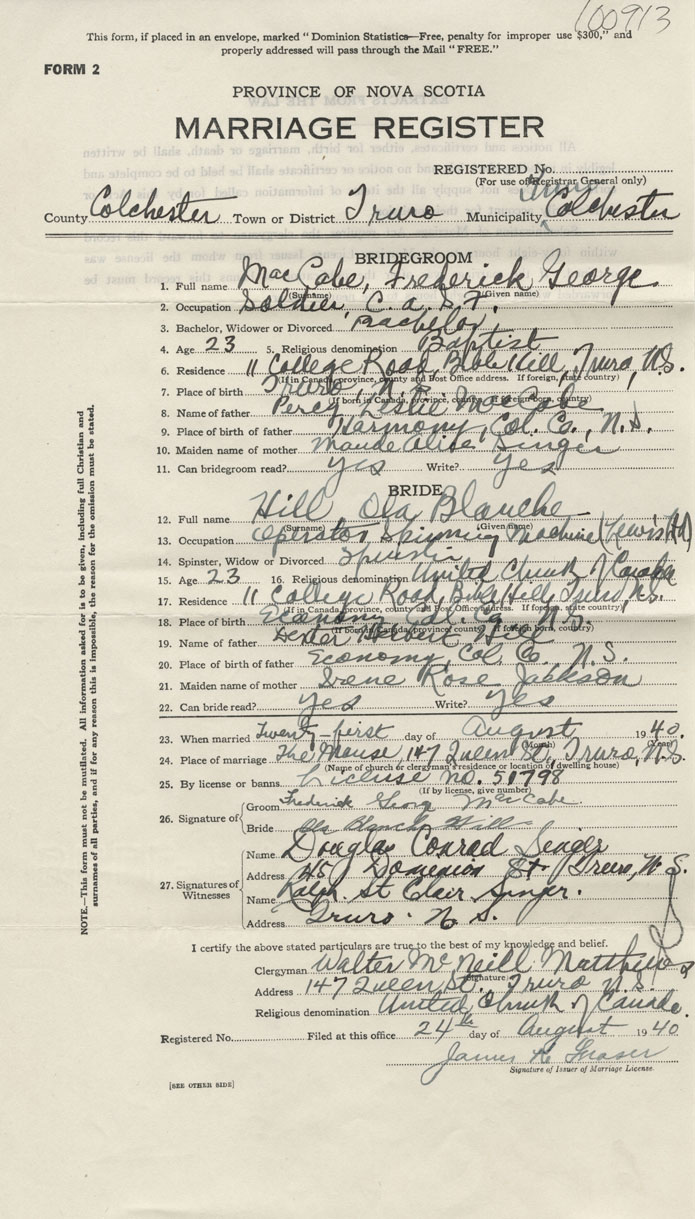 100913
This form, if placed in an envelope, marked "Dominion Statistics—Free, penalty for improper use $300," and
properly addressed will pass through the Mail "FREE."
FORM 2
PROVINCE OF NOVA SCOTIA
MARRIAGE REGISTER
REGISTERED No.
(For use of Registrar General only)
Truro
County Colchester Town or District Truro Municipality Colchester
BRIDEGROOM
1. Full name MacCabe, Frederick George
(Surname) (Given name)
2. Occupation Soldier, C. a. S. F.
3. Bachelor, Widower or Divorced Bachelor
4. Age 23 5. Religious denomination Baptist
6. Residence 11 College Road, Bible Hill, Truro, N.S.
(If in Canada, province, county and Post Office address. If foreign, state country)
7. Place of birth Truro, N.S.
(If born in Canada, province, county. If foreign born, country)
8. Name of father Percy Leslie MacCabe
9. Place of birth of father Harmony, Col. Co., N.S.
10. Maiden name of mother Maude Alice Singer
11. Can bridegroom read? Yes Write? Yes
BRIDE
12. Full name Hill Ola Blanche
(Surname) (Given name)
13. Occupation Operator Spinning Machine (Lewis Ltd)
14. Spinster, Widow or Divorced Spinster
15. Age 23 16. Religious denomination United Church of Canada
17. Residence 11 College Road, Bible Hill, Truro, N.S.
(If in Canada, province, county and Post Office address. If foreign, state country)
18. Place of birth Economy, Col. Co. N.S.
(If born in Canada, province, county. If foreign born, country)
19. Name of father Dexter Hill
20. Place of birth of father Economy, Col. Co. N.S.
21. Maiden name of mother Irene Rose Jackson
22. Can bride read? Yes Write? Yes
23. When married Twenty-first day of August 1940.
(Month) (Year)
24. Place of marriage The Manse, 147 Queen St., Truro, N.S.
(Name of church or clergyman's residence or location of dwelling house)
25. By license or banns License no. 51798
(If by license, give number)
26. Signature of
Groom Frederick George MacCabe
Bride Ola Blanche Hill
27. Signatures of Witnesses
Name Douglas Conrad Senger
Address 45 Dominion St Truro, N.S.
Name Ralph St Clair Singer.
Address Truro. N.S.
I certify the above stated particulars are true to the best of my knowledge and belief.
Clergyman Walter McNeill Matthews
(Signature)
Address 147 Queen St. Truro N.S.
Religious denomination United Church of Canada.
Registered No. Filed at this office 24th day of August 1940
James K Fraser
Signature of Issuer of Marriage License.
[SEE OTHER SIDE]
NOTE.—This form must not be mutilated. All information asked for is to be given, including full Christian and
surnames of all parties, and if for any reason this is impossible, the reason for the omission must be stated.